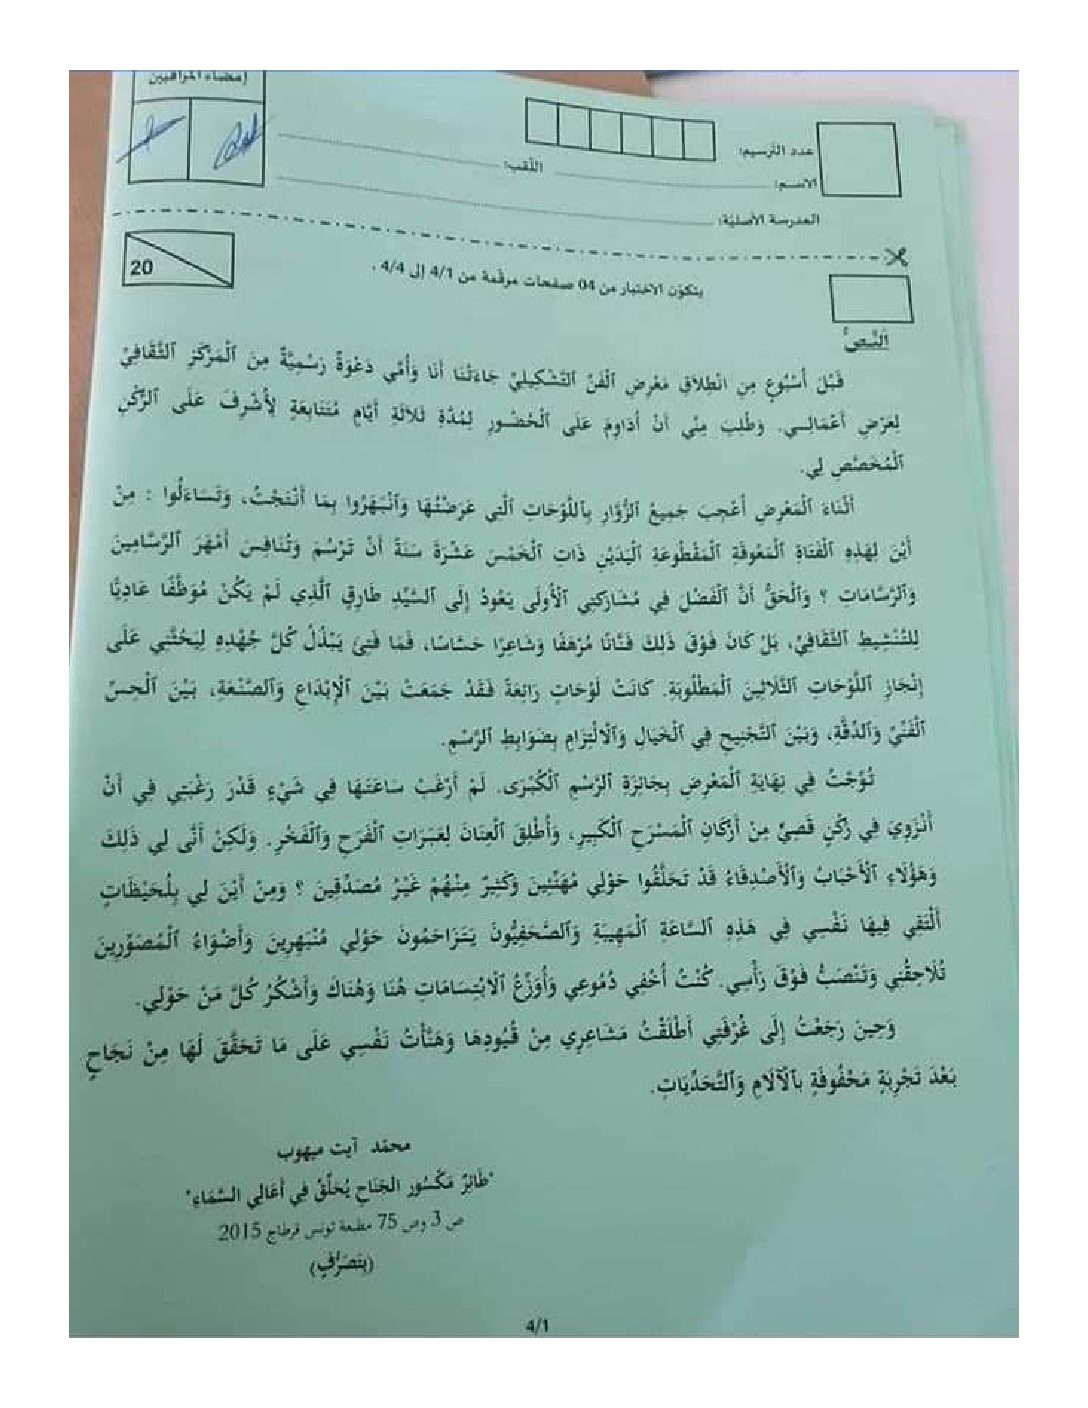 إمضاء المراقبين
عدد الترسيم:
الاسم: اللقب:
المدرسة الأصلية:
20
يتكوّن الاختبار من 04 صفحات مرقّمة من 4/1 إلى 4/4 .
النَّصُّ
قَبْلَ أُسْبُوعٍ مِنِ انْطِلَاقِ مَعْرِضِ ٱلْفَنِّ ٱلتَّشْكِيلِيِّ جَاءَتْنَا أَنَا وَأُمِّي دَعْوَةٌ رَسْمِيَّةٌ مِنَ ٱلْمَرْكَزِ ٱلثَّقَافِيِّ
لِعَرْضِ أَعْمَالِي. وَطُلِبَ مِنِّي أَنْ أُدَاوِمَ عَلَى ٱلْحُضُورِ لِمُدَّةِ ثَلَاثَةِ أَيَّامٍ مُتَتَابِعَةٍ لِأُشْرِفَ عَلَى ٱلرُّكْنِ
ٱلْمُخَصَّصِ لِي.
أَثْنَاءَ ٱلْمَعْرِضِ أُعْجِبَ جَمِيعُ ٱلزُّوَّارِ بِٱللَّوْحَاتِ ٱلَّتِي عَرَضْتُهَا وَٱنْبَهَرُوا بِمَا أَنْتَجْتُ، وَتَسَاءَلُوا : مِنْ
أَيْنَ لِهَذِهِ ٱلْفَتَاةِ ٱلْمَعُوقَةِ ٱلْمَقْطُوعَةِ ٱلْيَدَيْنِ ذَاتِ ٱلْخَمْسَ عَشْرَةَ سَنَةً أَنْ تَرْسُمَ وَتُنَافِسَ أَمْهَرَ ٱلرَّسَّامِينَ
وَٱلرَّسَّامَاتِ ؟ وَٱلْحَقُّ أَنَّ ٱلْفَضْلَ فِي مُشَارَكَتِي ٱلْأُولَى يَعُودُ إِلَى ٱلسَّيِّدِ طَارِقٍ ٱلَّذِي لَمْ يَكُنْ مُوَظَّفًا عَادِيًّا
لِلتَّنْشِيطِ ٱلثَّقَافِيِّ، بَلْ كَانَ فَوْقَ ذَلِكَ فَنَّانًا مُرْهَفًا وَشَاعِرًا حَسَّاسًا، فَمَا فَتِئَ يَبْذُلُ كُلَّ جُهْدِهِ لِيَحُثَّنِي عَلَى
إِنْجَازِ ٱللَّوْحَاتِ ٱلثَّلَاثِينَ ٱلْمَطْلُوبَةِ. كَانَتْ لَوْحَاتٍ رَائِعَةً فَقَدْ جَمَعَتْ بَيْنَ ٱلْإِبْدَاعِ وَٱلصَّنْعَةِ، بَيْنَ ٱلْحِسِّ
ٱلْفَنِّيِّ وَٱلدِّقَّةِ، وَبَيْنَ ٱلتَّجْنِيحِ فِي ٱلْخَيَالِ وَٱلِالْتِزَامِ بِضَوَابِطِ ٱلرَّسْمِ.
تُوِّجْتُ فِي نِهَايَةِ ٱلْمَعْرِضِ بِجَائِزَةِ ٱلرَّسْمِ ٱلْكُبْرَى. لَمْ أَرْغَبْ سَاعَتَهَا فِي شَيْءٍ قَدْرَ رَغْبَتِي فِي أَنْ
أَنْزَوِيَ فِي رُكْنٍ قَصِيٍّ مِنْ أَرْكَانِ ٱلْمَسْرَحِ ٱلْكَبِيرِ، وَأُطْلِقَ ٱلْعِنَانَ لِعَبَرَاتِ ٱلْفَرَحِ وَٱلْفَخْرِ. وَلَكِنْ أَنَّى لِي ذَلِكَ
وَهَؤُلَاءِ ٱلْأَحْبَابُ وَٱلْأَصْدِقَاءُ قَدْ تَحَلَّقُوا حَوْلِي مُهَنِّئِينَ وَكَثِيرٌ مِنْهُمْ غَيْرُ مُصَدِّقِينَ ؟ وَمِنْ أَيْنَ لِي بِلُحَيْظَاتٍ
أَلْتَقِي فِيهَا نَفْسِي فِي هَذِهِ ٱلسَّاعَةِ ٱلْمَهِيبَةِ وَٱلصَّحَفِيُّونَ يَتَزَاحَمُونَ حَوْلِي مُنْبَهِرِينَ وَأَضْوَاءُ ٱلْمُصَوِّرِينَ
تُلَاحِقُنِي وَتَنْصَبُّ فَوْقَ رَأْسِي. كُنْتُ أُخْفِي دُمُوعِي وَأُوَزِّعُ ٱلِابْتِسَامَاتِ هُنَا وَهُنَاكَ وَأَشْكُرُ كُلَّ مَنْ حَوْلِي.
وَحِينَ رَجَعْتُ إِلَى غُرْفَتِي أَطْلَقْتُ مَشَاعِرِي مِنْ قُيُودِهَا وَهَنَّأْتُ نَفْسِي عَلَى مَا تَحَقَّقَ لَهَا مِنْ نَجَاحٍ
بَعْدَ تَجْرِبَةٍ مَحْفُوفَةٍ بِٱلْآلَامِ وَٱلتَّحَدِّيَاتِ.
محمّد آيت ميهوب
"طَائِرٌ مَكْسُور الجَنَاحِ يُحَلِّقُ فِي أَعَالِي السَّمَاءِ"
ص 3 وص 75 مطبعة تونس قرطاج 2015
(بِتَصَرُّفٍ)
4/1